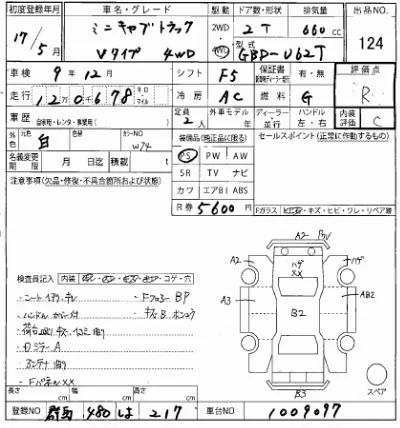 初度登録年月 車名・グレード 駆動 ドア数・形状 排気量 出品NO
17/5月 ミニキャブトラック 2WD 2T 660cc 124
Vタイプ 4WD 4WD 型式 GBD-U62T
車検 9年12月 シフト F5 保証書 有・無 評価点
走行 120678 冷房 AC 燃料 G R
車歴 自家用・レンタ・事業用 定員 2人 外車モデル ディーラー・並行 ハンドル 左・右 内装評価 C
外色 元色 白 カラーNO W74 装備品(純正品に限る) セールスポイント(正常に作動するもの)
名義変更期限 月 日迄 積載 t PS PW AW
注意事項(欠品・修復・不具合箇所および状態) SR TV ナビ
カワ エアB ABS
R券 5600円 Fガラス
キズ・ヒビ・ワレ・リペア跡
A2
A2 ハゲ XX ハゲ
検査員記入 内装 コゲ・穴
A3 B2 AB2
ハンドル カバー付
ミラーA
アンテナ
Fパネル XX
B3 スペア
長さ cm 幅 cm 高さ cm
登録NO 群馬 480 は 217 車台NO 1009097